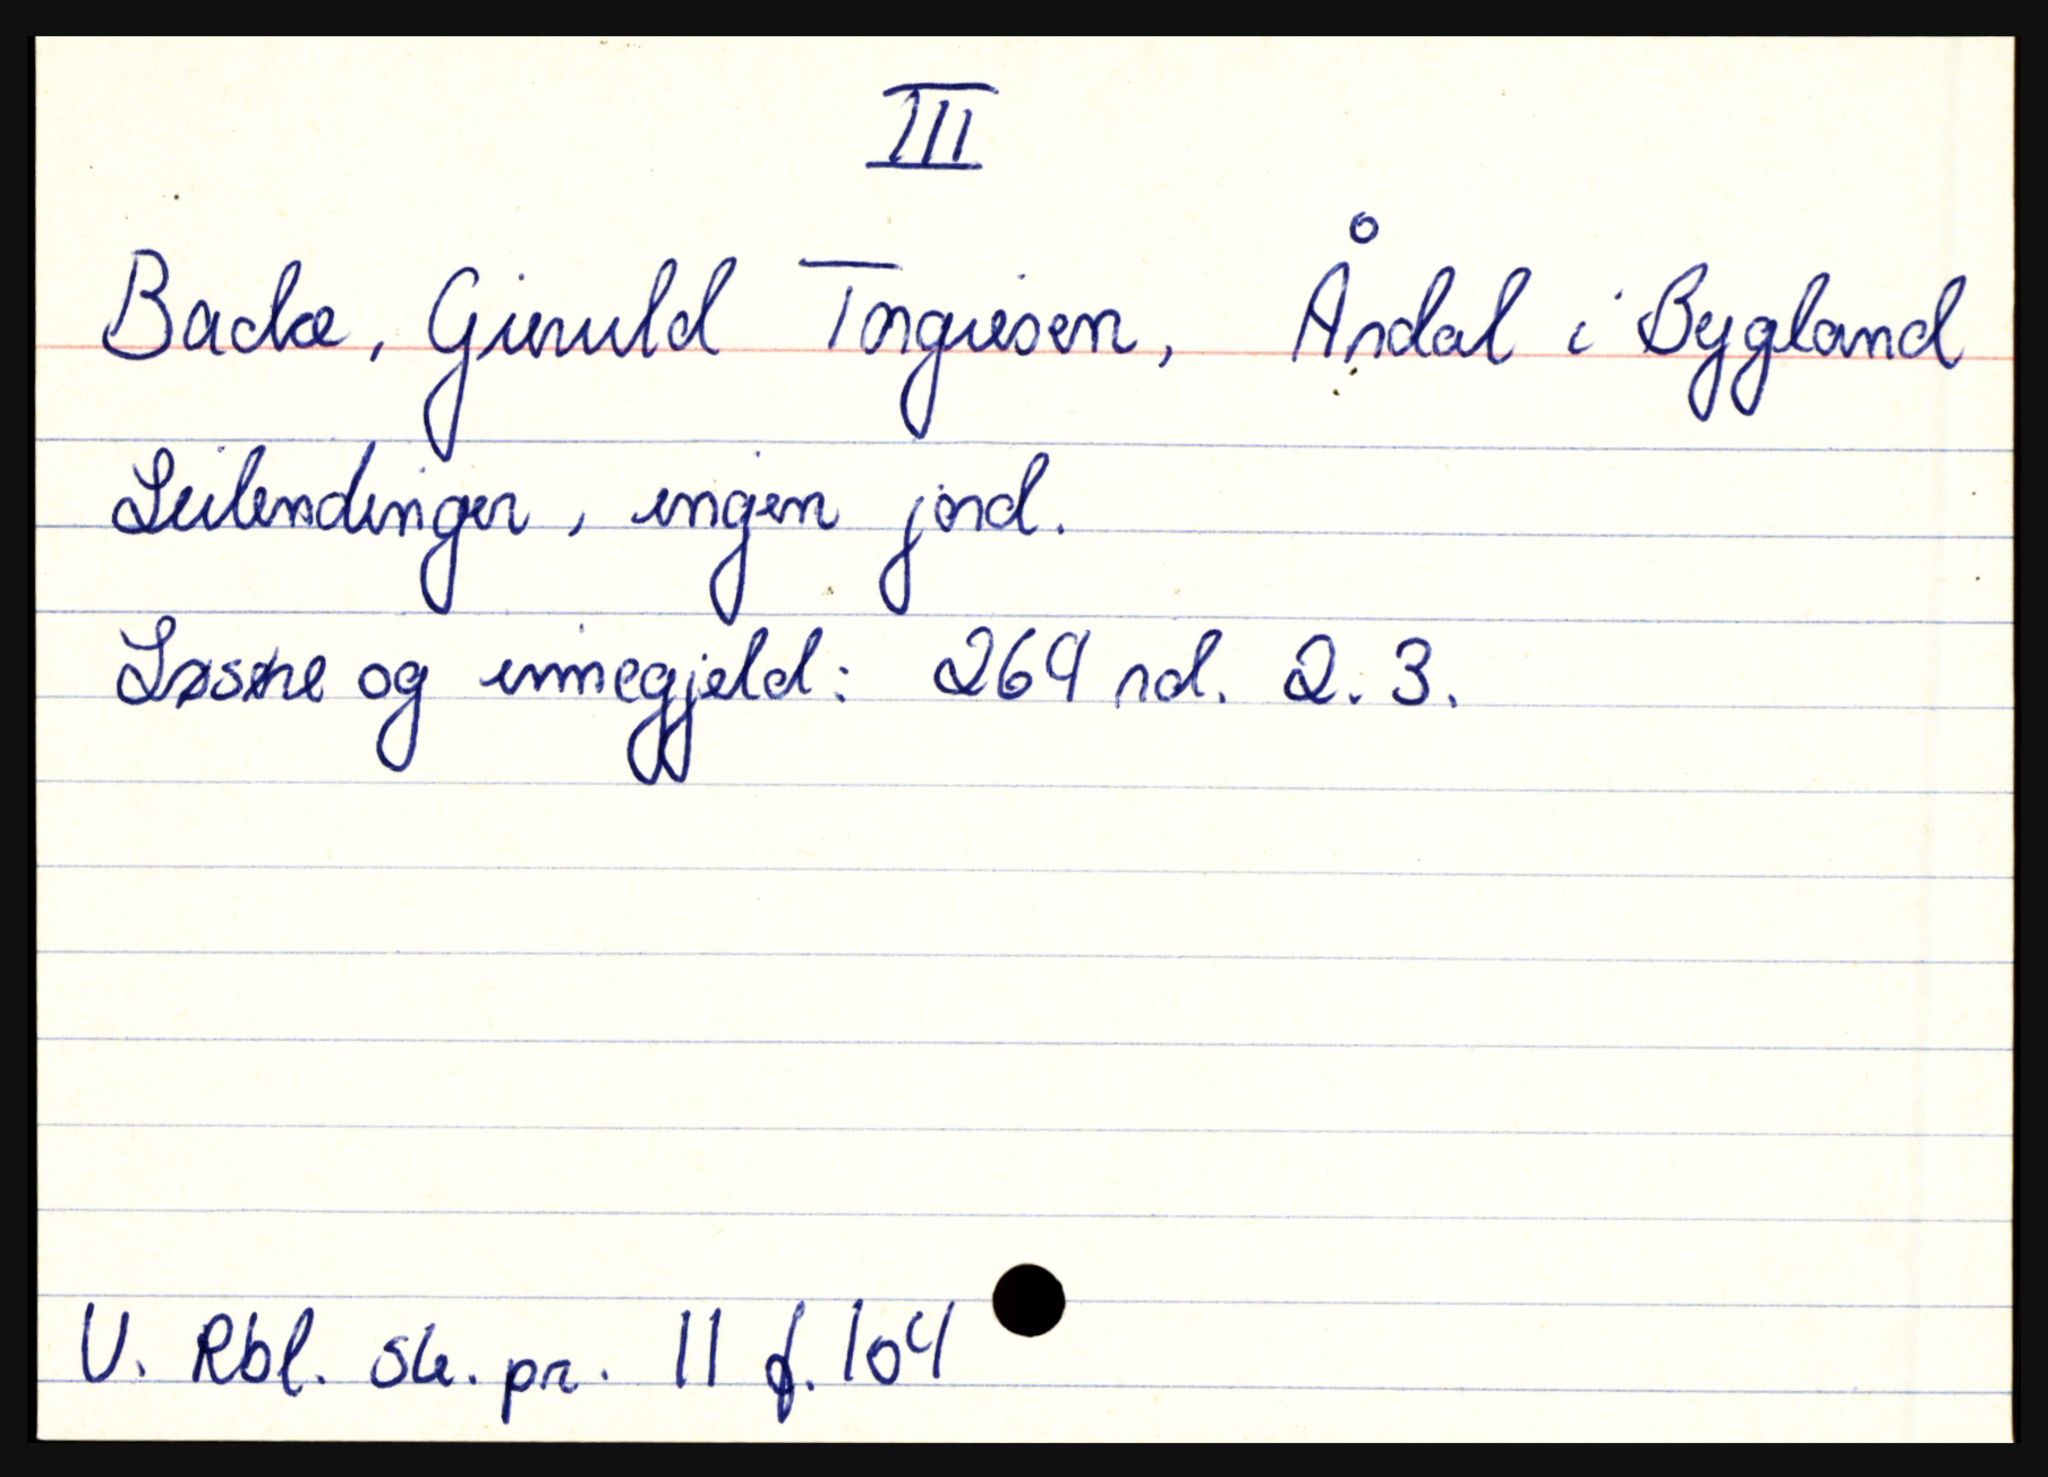 III
Backe, Gieruld Torgiesen, Årdal i Bygland
Leilendinger, ingen jord.
Løsøre og innegjeld: 269 rd. 2. 3.
V. Rbl. sk. pr. 11 f. 104